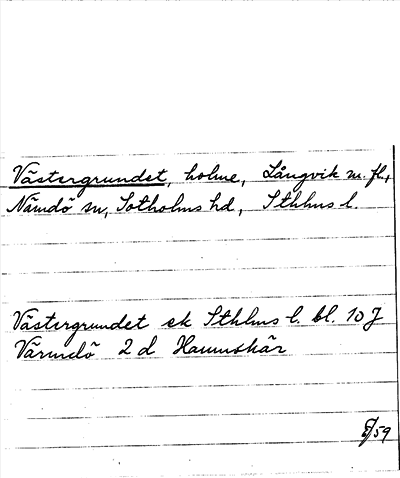 Västergrundet, holme, Långvik m. fl.,
Nämdö sn, Sotholms hd, Sthlms l.
Västergrundet ek Sthlms l. bl. 10 J
Värmdö 2 d Hamnskär
/59